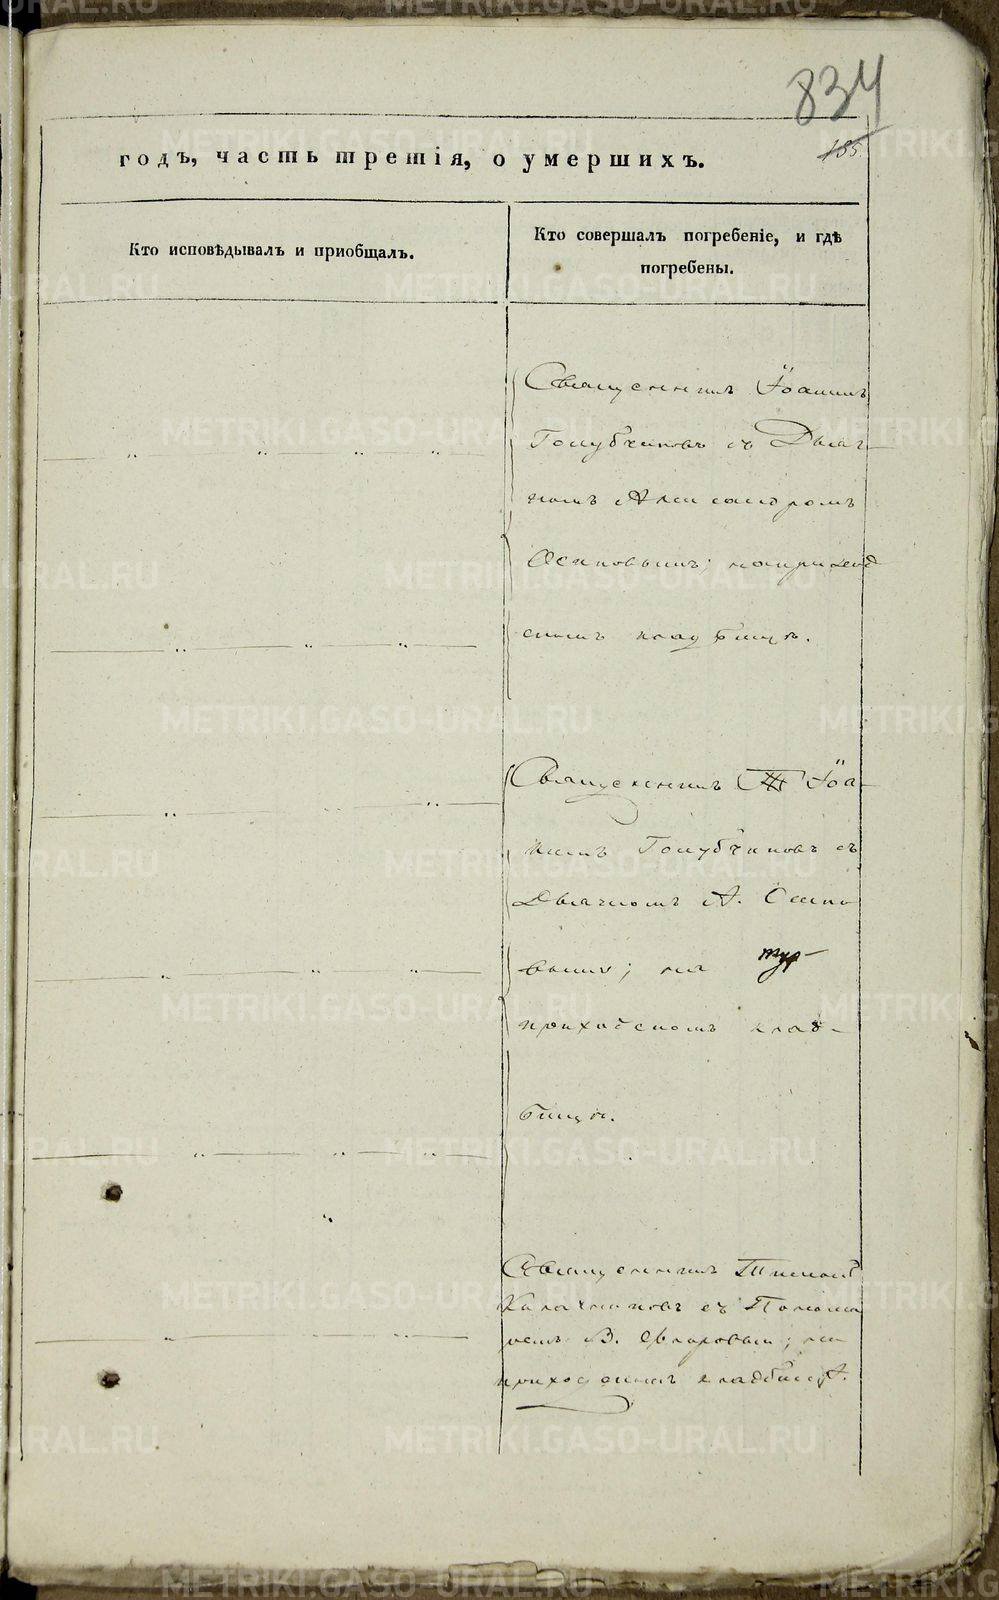 834
185.
годъ, часть третія, о умершихъ.
Кто исповѣдывалъ и приобщалъ.
Кто совершалъ погребеніе, и гдѣ
погребены.
Священникъ Іоаннъ
Голубчиковъ съ Дьяч-
комъ Александромъ
Осиповымъ; на приход
скомъ кладбищѣ.
Священникъ Іоа-
ннъ Голубчиковъ съ
Дьячкомъ А. Осипо
вымъ; на
приходскомъ клад-
бищѣ.
Священникъ Тимофей
съ Понома
ремъ В. ; на
приходскомъ кладбищѣ.
METRIKI.GASO-URAL.RU